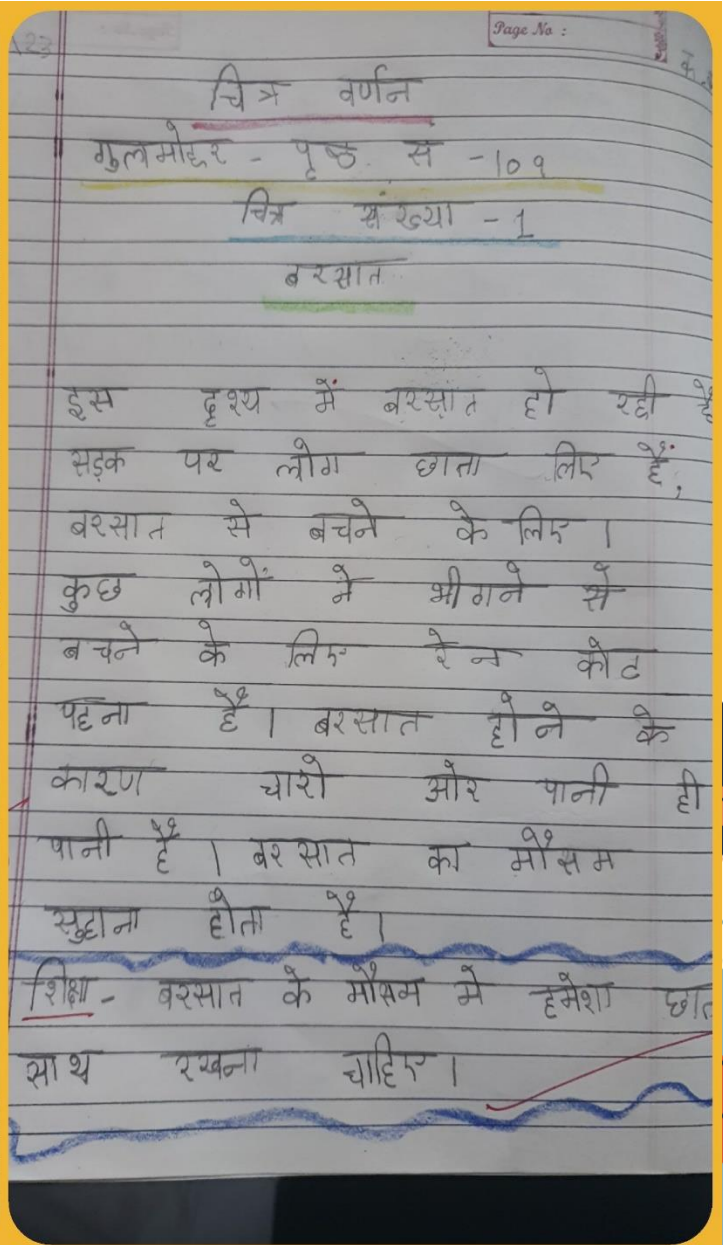 Page No :
चित्र वर्णन
गुलमोहर - पृष्ठ स -109
चित्र संख्या - 1
बरसात
इस दृश्य में बरसात हो रही है
सड़क पर लोग छाता लिए हैं,
बरसात से बचने के लिए ।
कुछ लोगों ने भीगने से
बचने के लिए रेन कोट
पहना है । बरसात होने के
कारण चारो ओर पानी ही
पानी है । बरसात का मौसम
सुहाना होता है ।
शिक्षा - बरसात के मौसम मे हमेशा छात
साथ रखना चाहिए ।